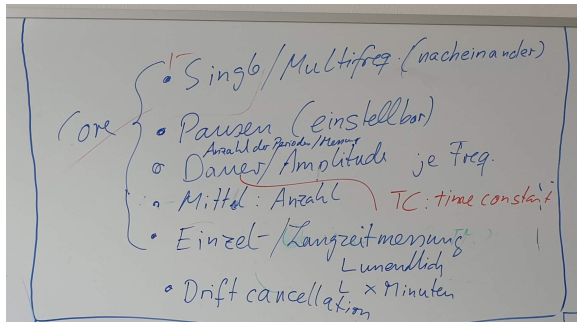 • Single/Multifreq. (nacheinander)
Core
• Pausen (einstellbar)
Anzahl der Perioden/Messung
• Dauer/Amplitude je Freq.
• Mittel: Anzahl
TC: time constant
• Einzel-/Langzeitmessung
L unendlich
L x Minuten
• Drift cancellation